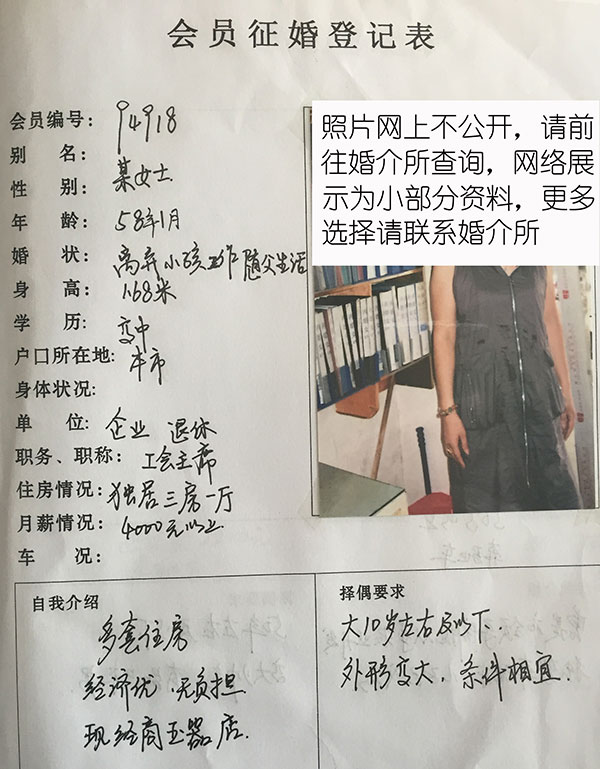 会员征婚登记表
会员编号: 94918
别 名: 某女士
性 别:
年 龄: 58年1月
婚 状: 离弃小孩工作随父生活
身 高: 1.68米
学 历: 高中
户口所在地: 本市
身体状况:
单 位: 企业 退休
职务、职称: 工会主席
住房情况: 独居三房一厅
月薪情况: 4000元以上
车 况:
照片网上不公开，请前
往婚介所查询，网络展
示为小部分资料，更多
选择请联系婚介所
自我介绍
多套住房
经济优、无负担
现经商玉器店.
择偶要求
大10岁左右及以下.
外形高大、条件相宜.